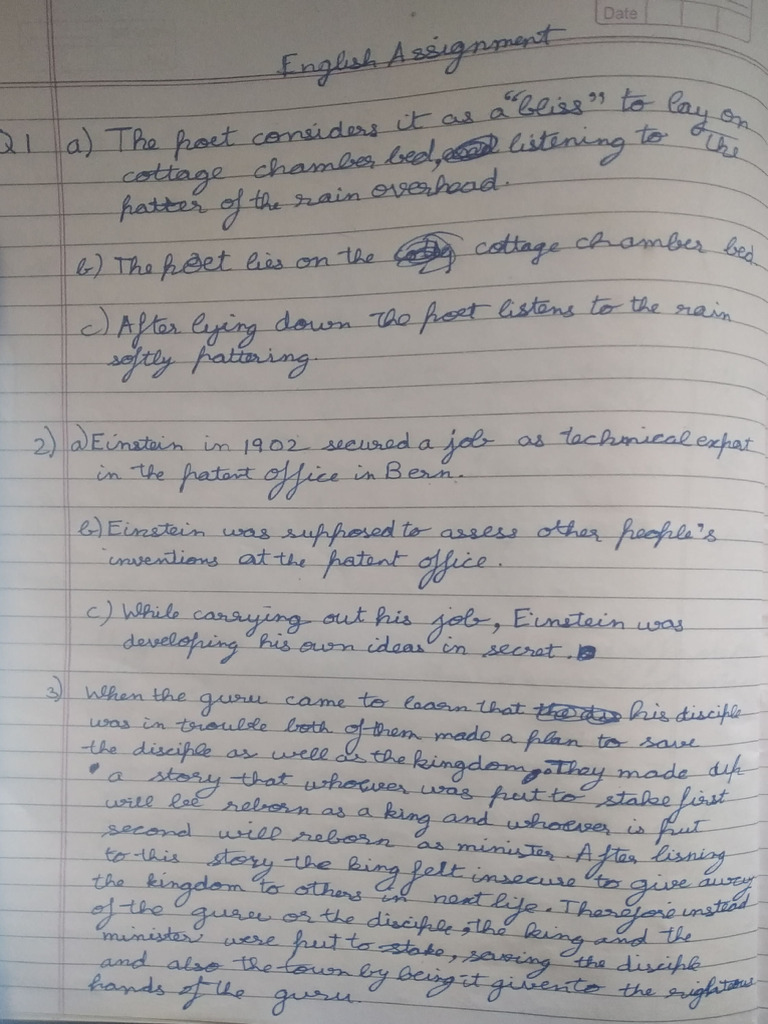 Date
English Assignment
Q1 a) The poet considers it as a "bliss" to lay on
cottage chamber bed, listening to the
patter of the rain overhead.
b) The poet lies on the cottage chamber bed.
c) After lying down the poet listens to the rain
softly pattering.
2) a) Einstein in 1902 secured a job as technical expert
in the patent office in Bern.
b) Einstein was supposed to assess other people's
inventions at the patent office.
c) While carrying out his job, Einstein was
developing his own ideas in secret.
3) When the guru came to learn that his disciple
was in trouble both of them made a plan to save
the disciple as well as the kingdom. They made up
a story that whoever was put to stake first
will be reborn as a king and whoever is put
second will reborn as minister. After lisning
to this story the king felt insecure to give away
the kingdom to others in next life. Therefore instead
of the guru or the disciple, the king and the
minister were put to stake, saving the disciple
and also the town by being it given to the righteous
hands of the guru.